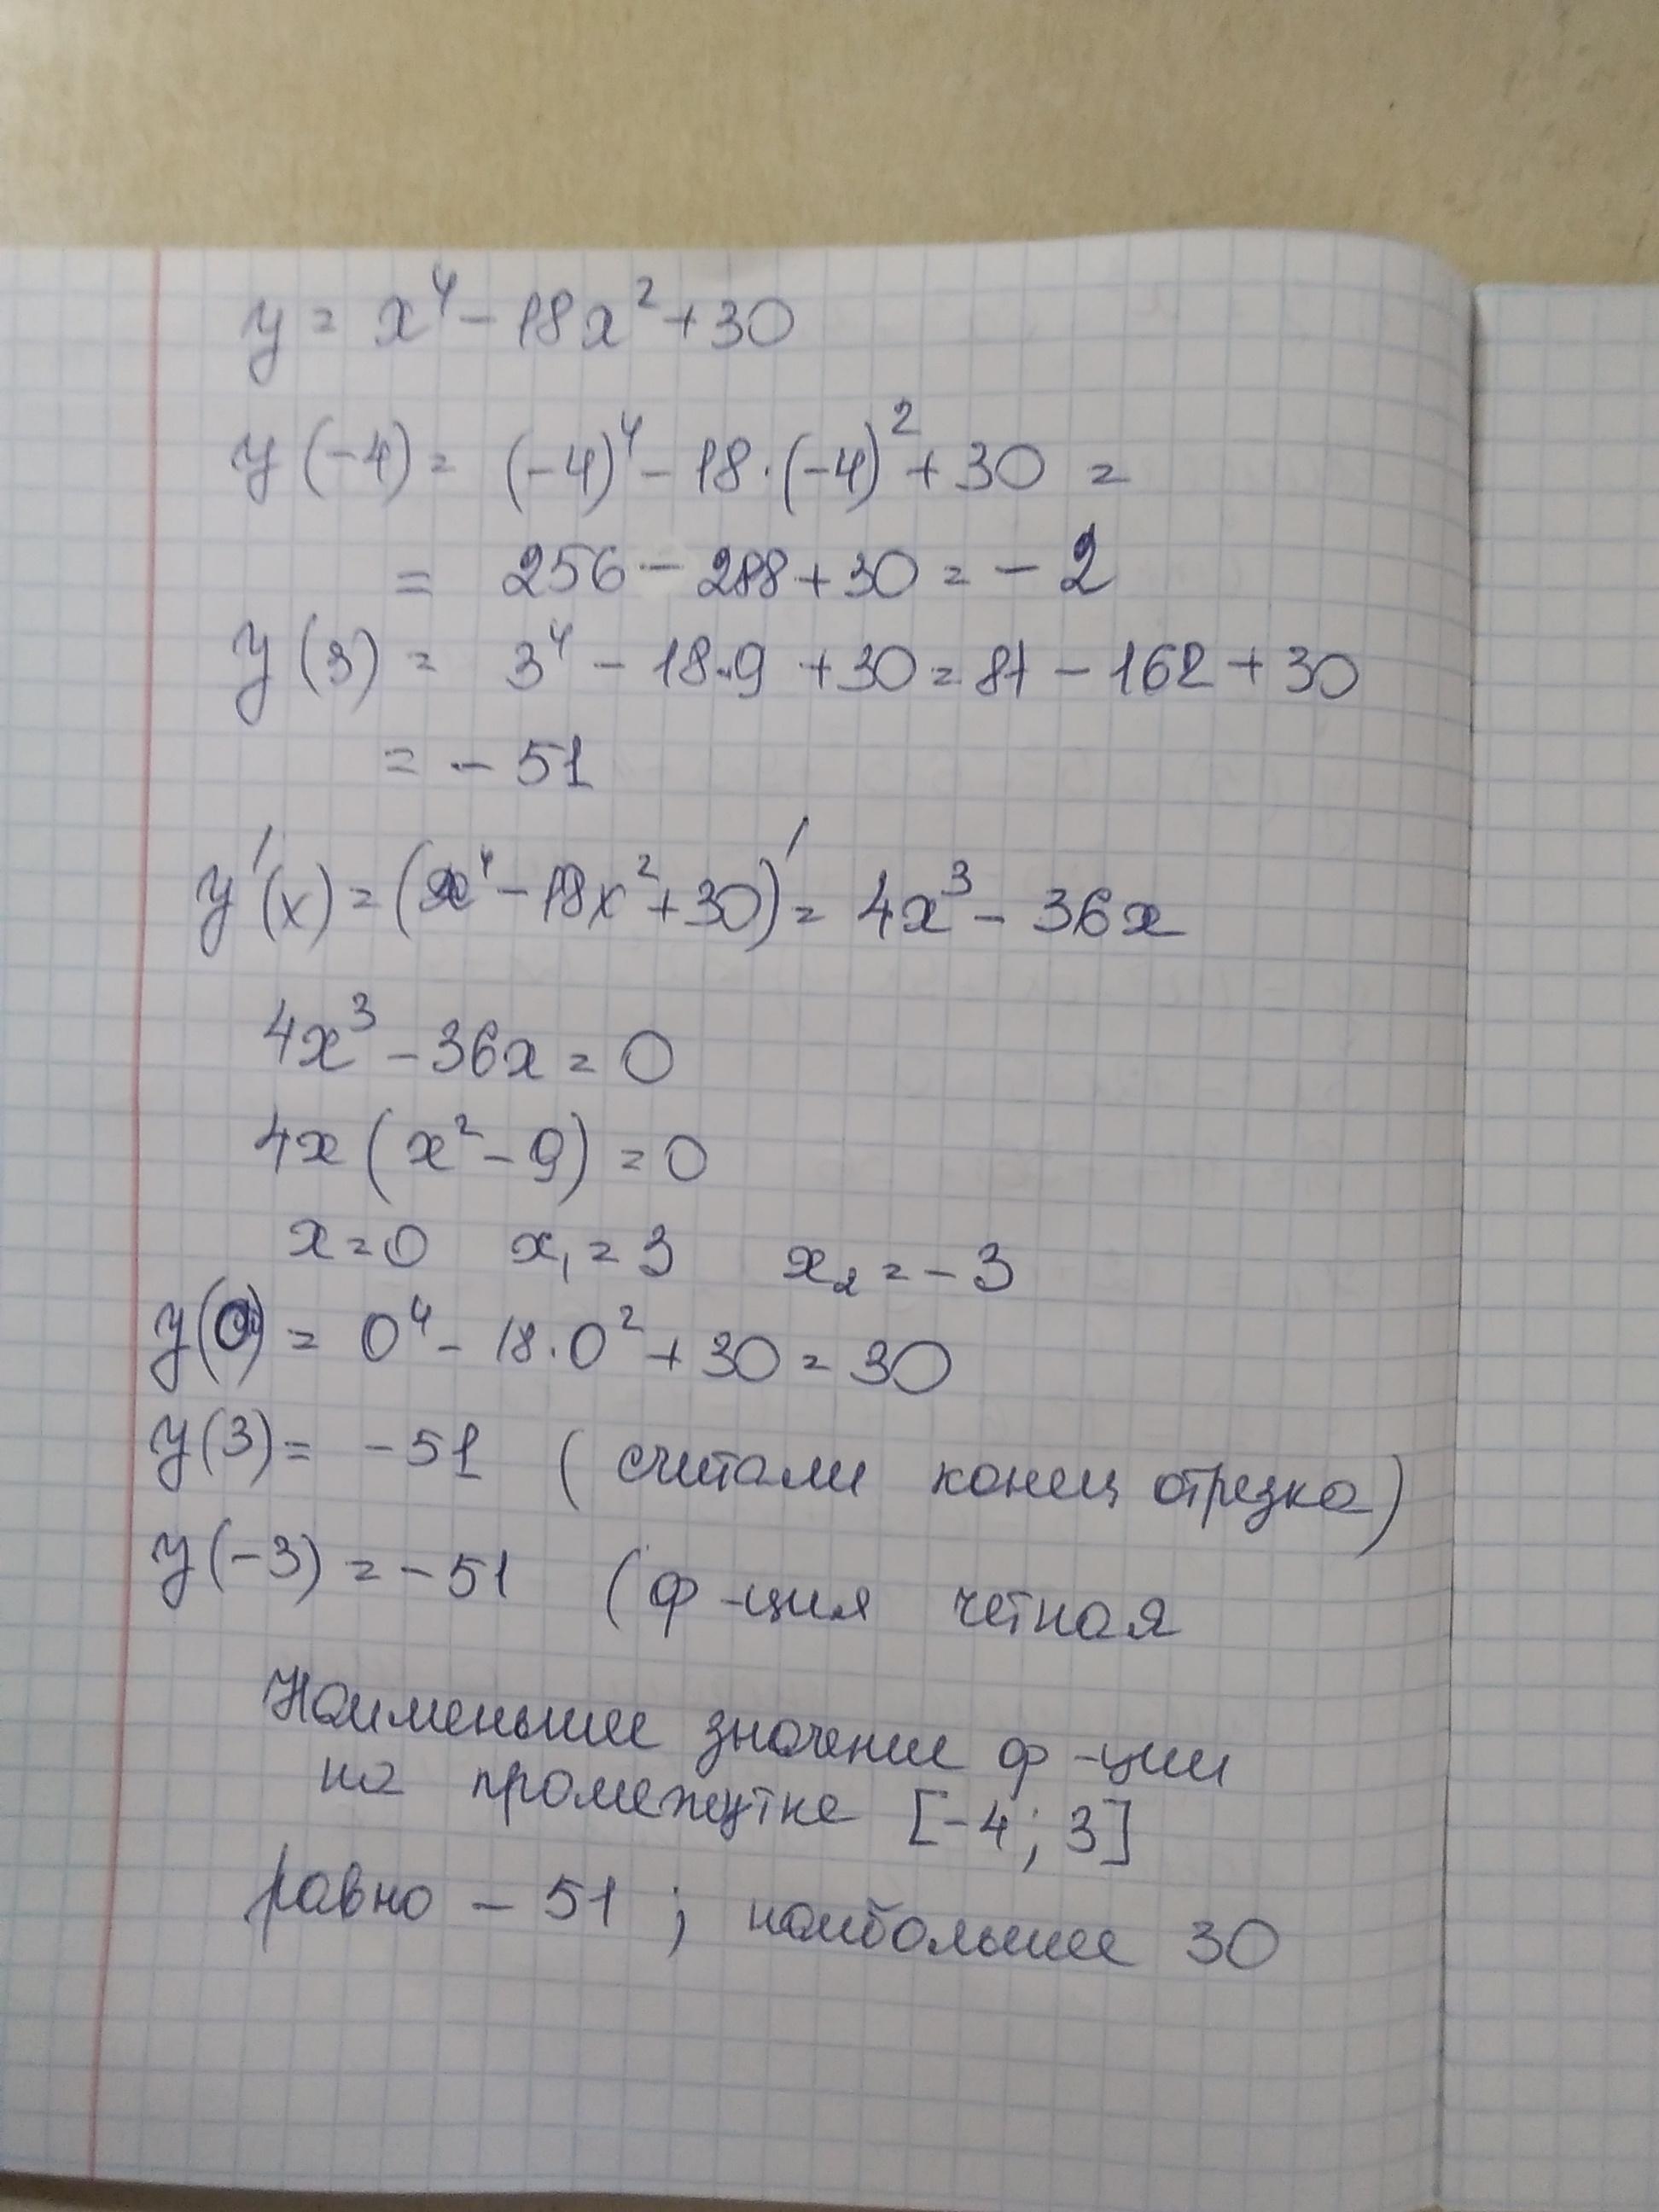 y = x⁴ - 18x² + 30
y(-4) = (-4)⁴ - 18·(-4)² + 30 =
= 256 - 288 + 30 = - 2
y(3) = 3⁴ - 18·9 + 30 = 81 - 162 + 30
= - 51
y'(x) = (x⁴ - 18x² + 30)' = 4x³ - 36x
4x³ - 36x = 0
4x(x² - 9) = 0
x = 0 x₁ = 3 x₂ = - 3
y(0) = 0⁴ - 18·0² + 30 = 30
y(3) = - 51 (считали конец отрезка)
y(-3) = - 51 (ф-ция четная
Наименьшее значение ф-ции
на промежутке [-4; 3]
равно - 51; наибольшее 30